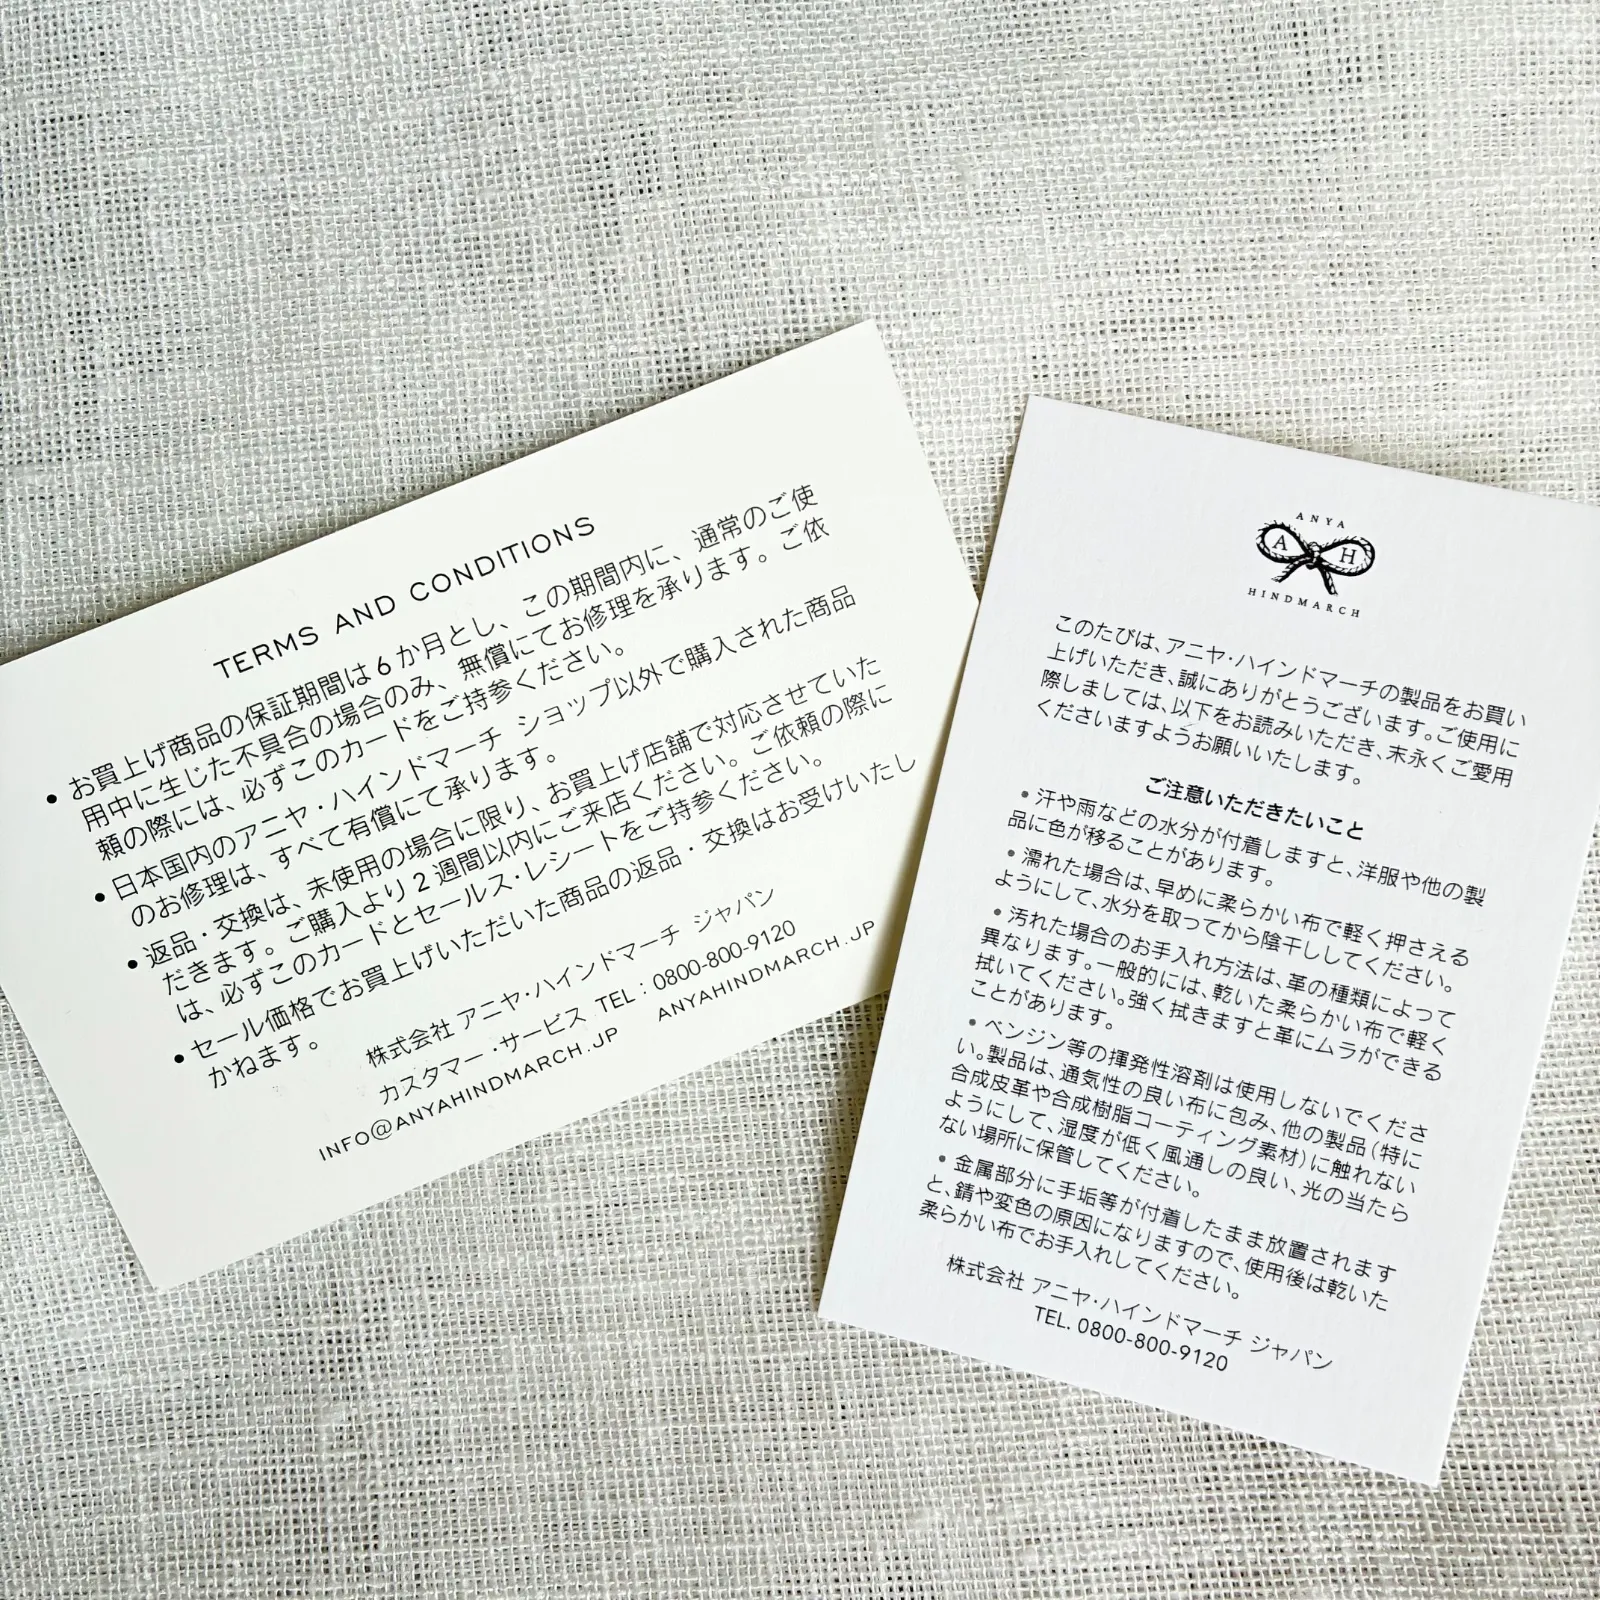 TERMS AND CONDITIONS
• お買上げ商品の保証期間は6か月とし、この期間内に、通常のご使
用中に生じた不具合の場合のみ、無償にてお修理を承ります。ご依
頼の際には、必ずこのカードをご持参ください。
• 日本国内のアニヤ・ハインドマーチ ショップ以外で購入された商品
のお修理は、すべて有償にて承ります。
• 返品・交換は、未使用の場合に限り、お買上げ店舗で対応させていた
だきます。ご購入より2週間以内にご来店ください。ご依頼の際に
は、必ずこのカードとセールス・レシートをご持参ください。
• セール価格でお買上げいただいた商品の返品・交換はお受けいたし
かねます。
株式会社 アニヤ・ハインドマーチ ジャパン
カスタマー・サービス TEL : 0800-800-9120
INFO@ANYAHINDMARCH.JP ANYAHINDMARCH.JP
ANYA
A H
HINDMARCH
このたびは、アニヤ・ハインドマーチの製品をお買い
上げいただき、誠にありがとうございます。ご使用に
際しましては、以下をお読みいただき、末永くご愛用
くださいますようお願いいたします。
ご注意いただきたいこと
• 汗や雨などの水分が付着しますと、洋服や他の製
品に色が移ることがあります。
• 濡れた場合は、早めに柔らかい布で軽く押さえる
ようにして、水分を取ってから陰干ししてください。
• 汚れた場合のお手入れ方法は、革の種類によって
異なります。一般的には、乾いた柔らかい布で軽く
拭いてください。強く拭きますと革にムラができる
ことがあります。
• ベンジン等の揮発性溶剤は使用しないでくださ
い。製品は、通気性の良い布に包み、他の製品(特に
合成皮革や合成樹脂コーティング素材)に触れない
ようにして、湿度が低く風通しの良い、光の当たら
ない場所に保管してください。
• 金属部分に手垢等が付着したまま放置されます
と、錆や変色の原因になりますので、使用後は乾いた
柔らかい布でお手入れしてください。
株式会社 アニヤ・ハインドマーチ ジャパン
TEL. 0800-800-9120